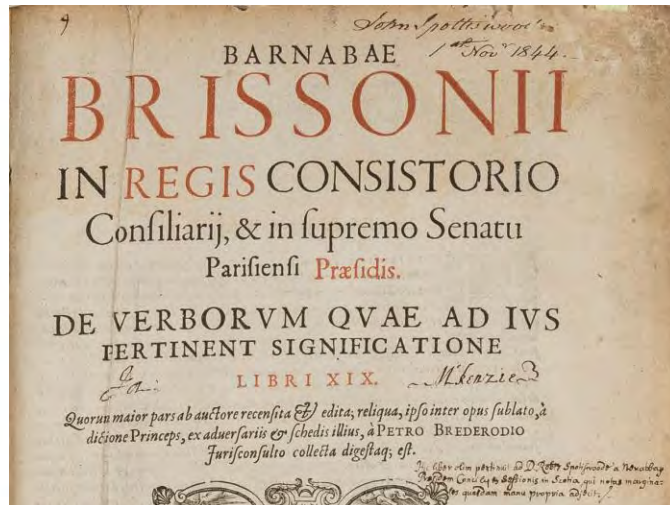 John Spottiswood's
1st Novr 1844.
BARNABAE
BRISSONII
IN REGIS CONSISTORIO
Conſiliarij, & in ſupremo Senatu
Pariſienſi Præſidis.
DE VERBORVM QVAE AD IVS
PERTINENT SIGNIFICATIONE
LIBRI XIX.
Mckenzie
Quorum maior pars ab auctore recenſita & edita; reliqua, ipſo inter opus ſublato, à
dicione Princeps, ex aduerſariis & ſchedis illius, à PETRO BREDERODIO
Juriſconſulto collecta digeſtaq; eſt.
liber olim pertinuit ad D. Robtm Spotiswoode a Newabbay
Præsidem in Scotia, qui notas margina-
les quasdam manu propria adjecit